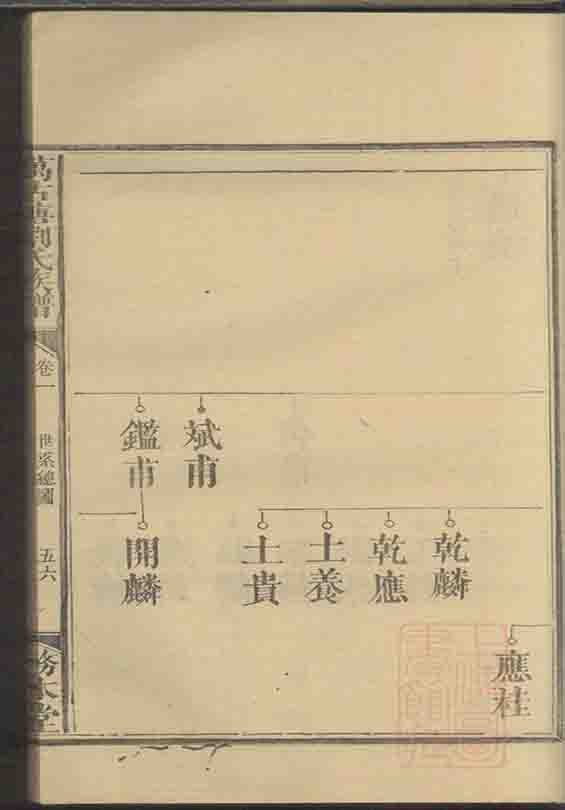 斌甫
鑑甫
乾麟
乾應
士養
士貴
開麟
應桂
劉氏族譜
卷一
世系總圖
五六
務本堂